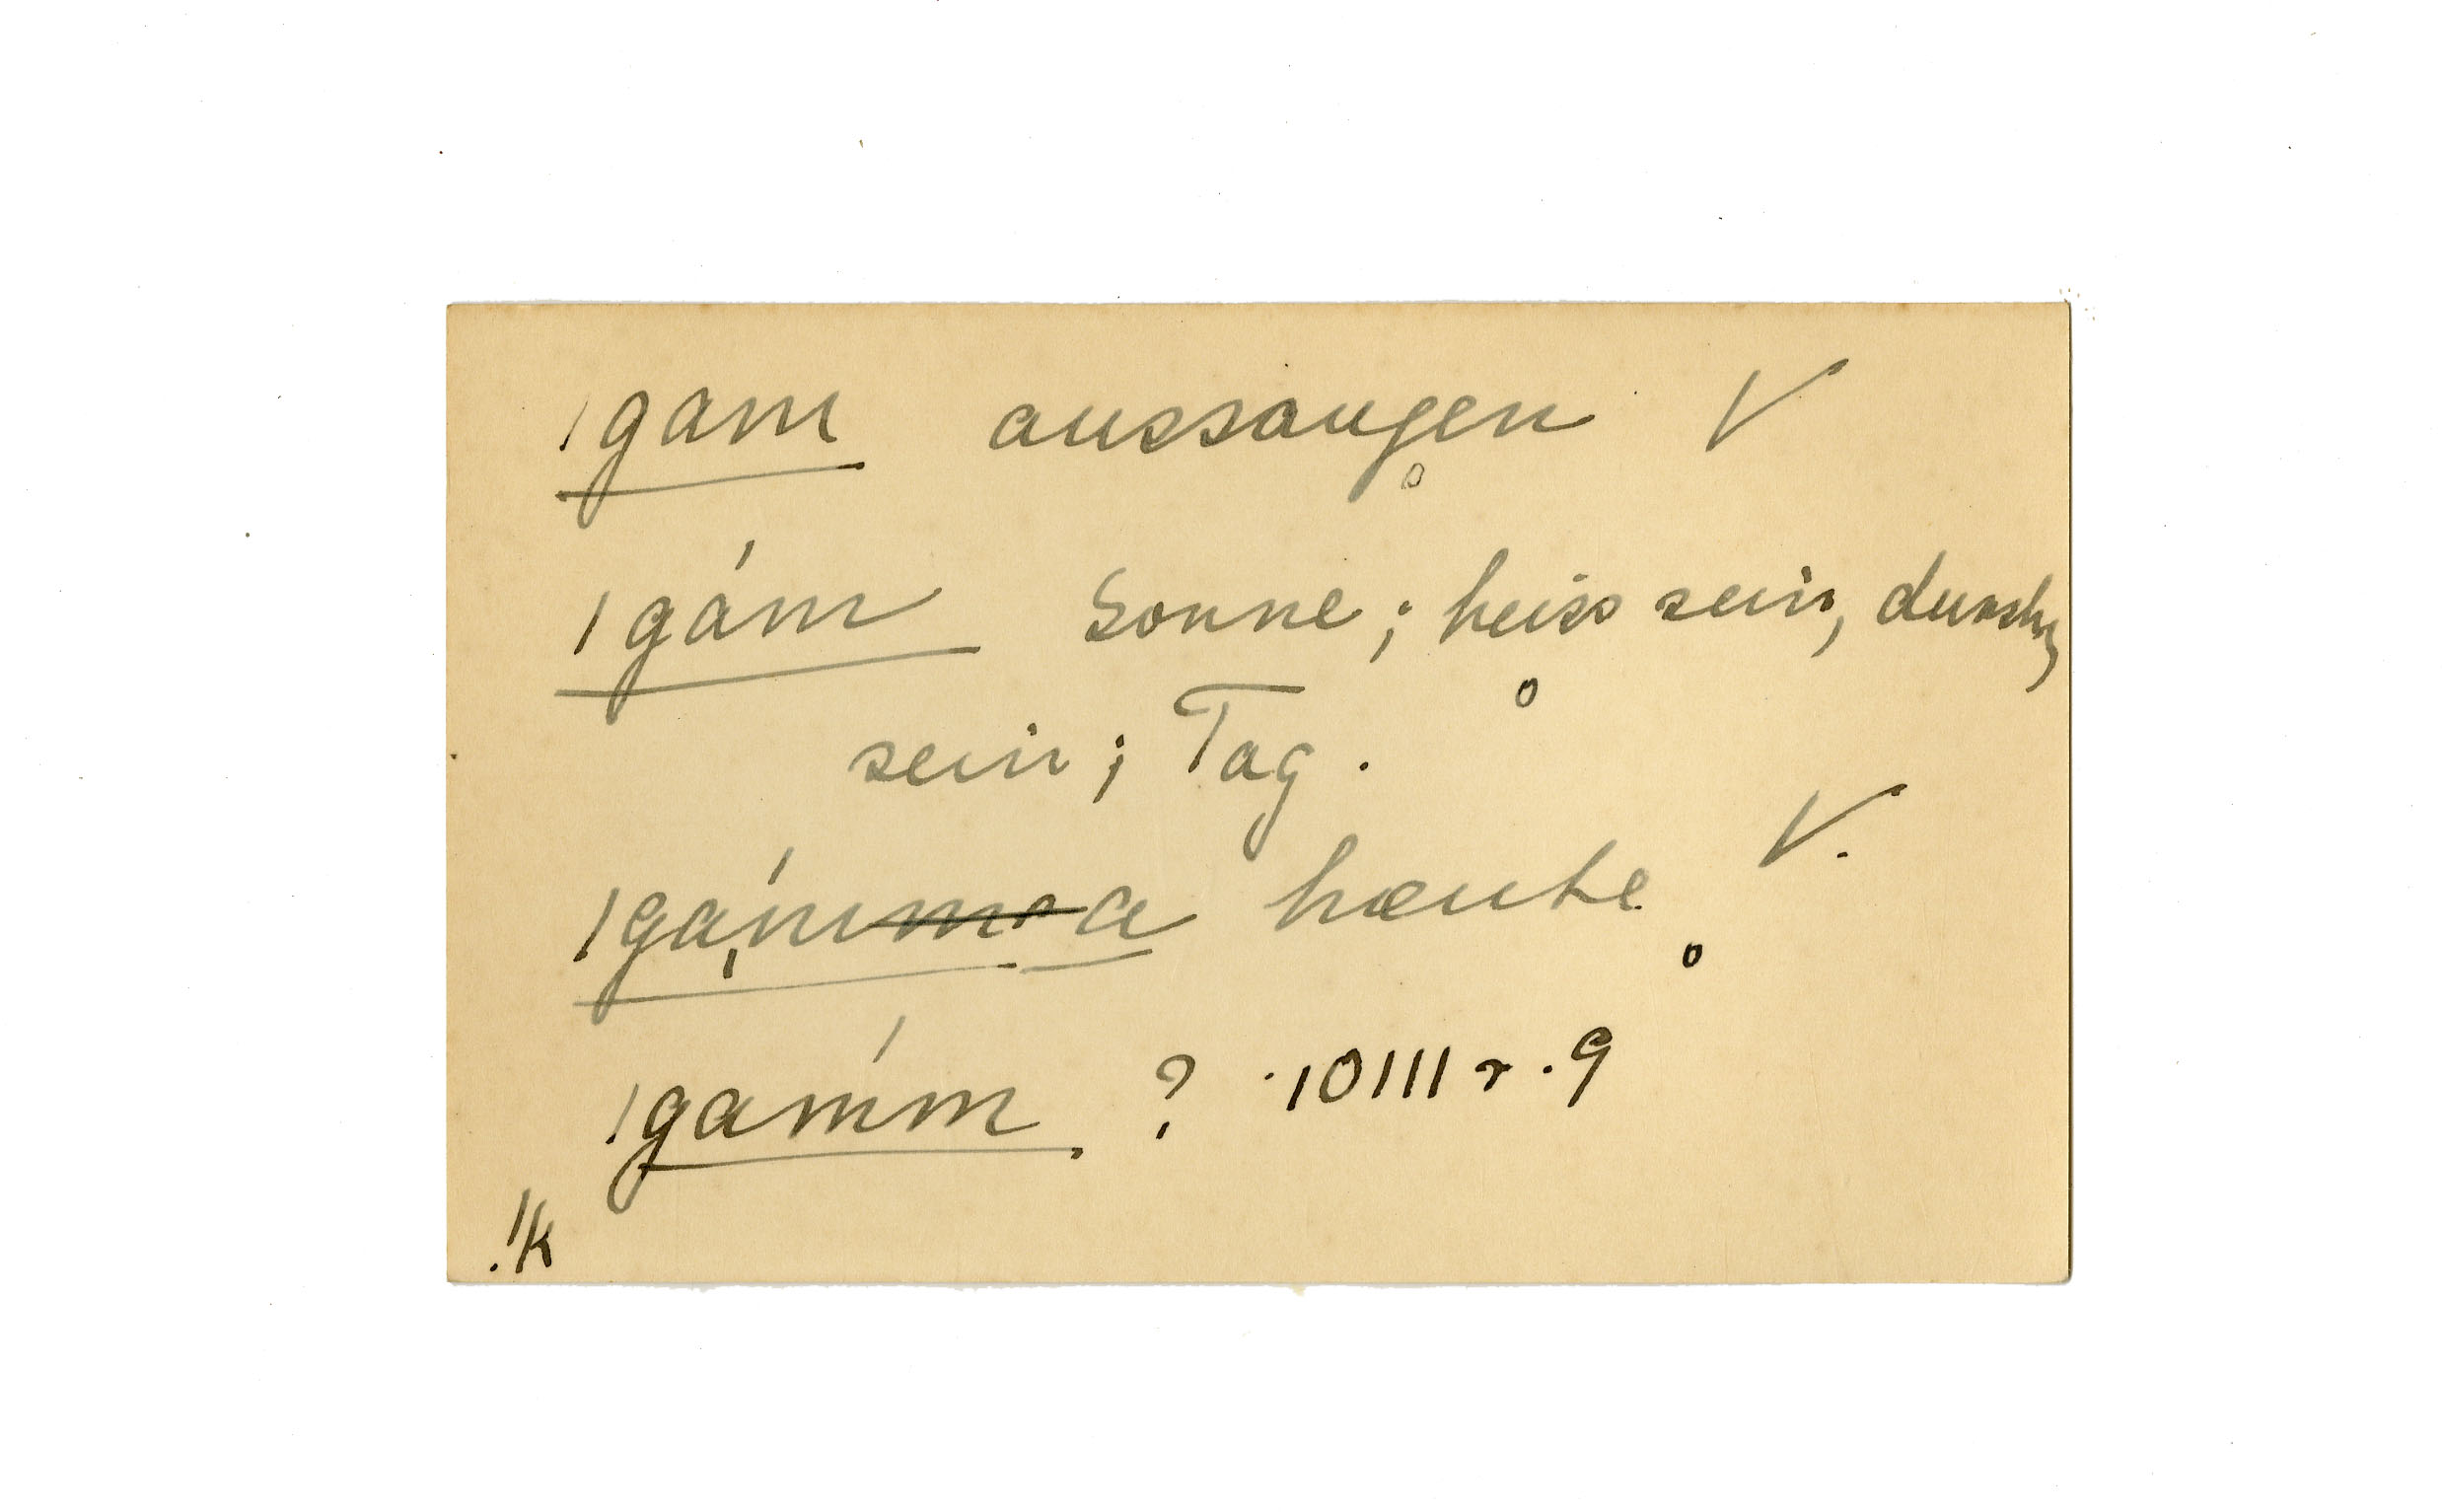 /gam aussaugen V
/gám Sonne; heiss sein, durstig
sein; Tag.
/gáma heute V.
/gamḿ ? 10 III r. 9
!k